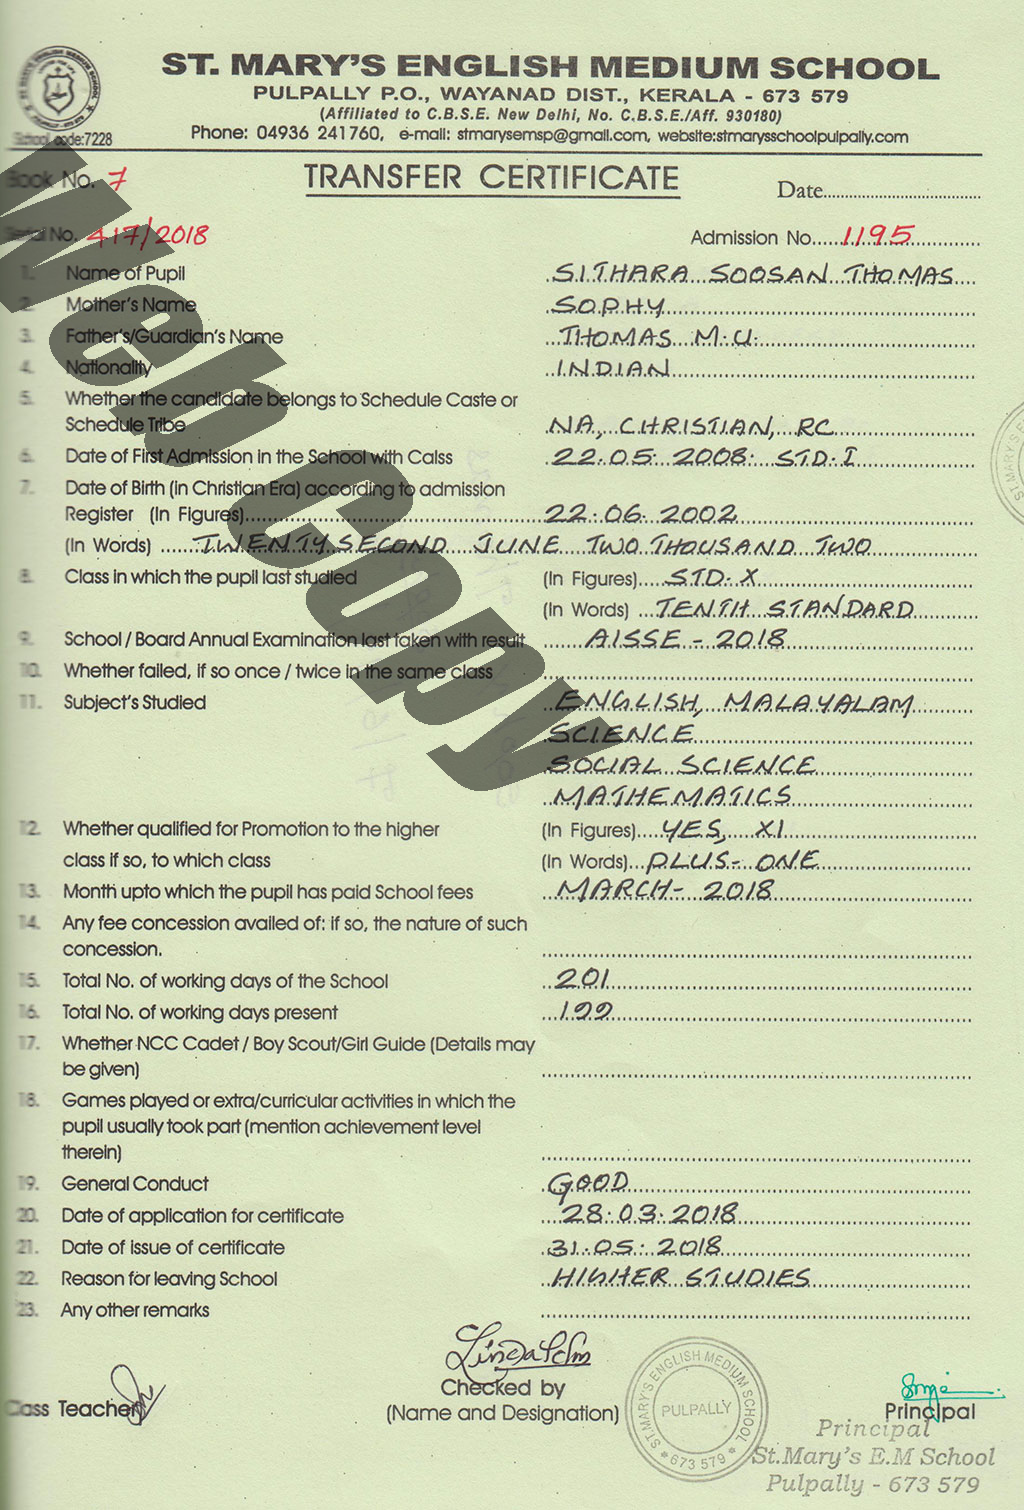 ST. MARY'S ENGLISH MEDIUM SCHOOL
PULPALLY P.O., WAYANAD DIST., KERALA - 673 579
(Affiliated to C.B.S.E. New Delhi, No. C.B.S.E./Aff. 930180)
School code:7228
Phone: 04936 241760, e-mail: stmarysemsp@gmail.com, website:stmarysschoolpulpally.com
Book No. 7
TRANSFER CERTIFICATE
Date
Serial No. 417/2018
Admission No. 1195
1. Name of Pupil SITHARA SOOSAN THOMAS
2. Mother's Name SOPHY
3. Father's/Guardian's Name THOMAS M.U.
4. Nationality INDIAN
5. Whether the candidate belongs to Schedule Caste or
Schedule Tribe NA, CHRISTIAN, RC
6. Date of First Admission in the School with Calss 22.05.2008. STD.I
7. Date of Birth (in Christian Era) according to admission
Register (In Figures) 22.06.2002
(In Words) TWENTY SECOND JUNE TWO THOUSAND TWO
8. Class in which the pupil last studied (In Figures) STD.X
(In Words) TENTH STANDARD
9. School / Board Annual Examination last taken with result AISSE - 2018
10. Whether failed, if so once / twice in the same class
11. Subject's Studied ENGLISH, MALAYALAM
SCIENCE
SOCIAL SCIENCE
MATHEMATICS
12. Whether qualified for Promotion to the higher (In Figures) YES, XI
class if so, to which class (In Words) PLUS-ONE
13. Month upto which the pupil has paid School fees MARCH-2018
14. Any fee concession availed of: if so, the nature of such
concession.
15. Total No. of working days of the School 201
16. Total No. of working days present 199
17. Whether NCC Cadet / Boy Scout/Girl Guide (Details may
be given)
18. Games played or extra/curricular activities in which the
pupil usually took part (mention achievement level
therein)
19. General Conduct GOOD
20. Date of application for certificate 28.03.2018
21. Date of issue of certificate 31.05.2018
22. Reason for leaving School HIGHER STUDIES
23. Any other remarks
Web Copy
Class Teacher
Checked by
(Name and Designation)
ST.MARY'S ENGLISH MEDIUM SCHOOL
PULPALLY
673 579
Principal
Principal
St.Mary's E.M School
Pulpally - 673 579